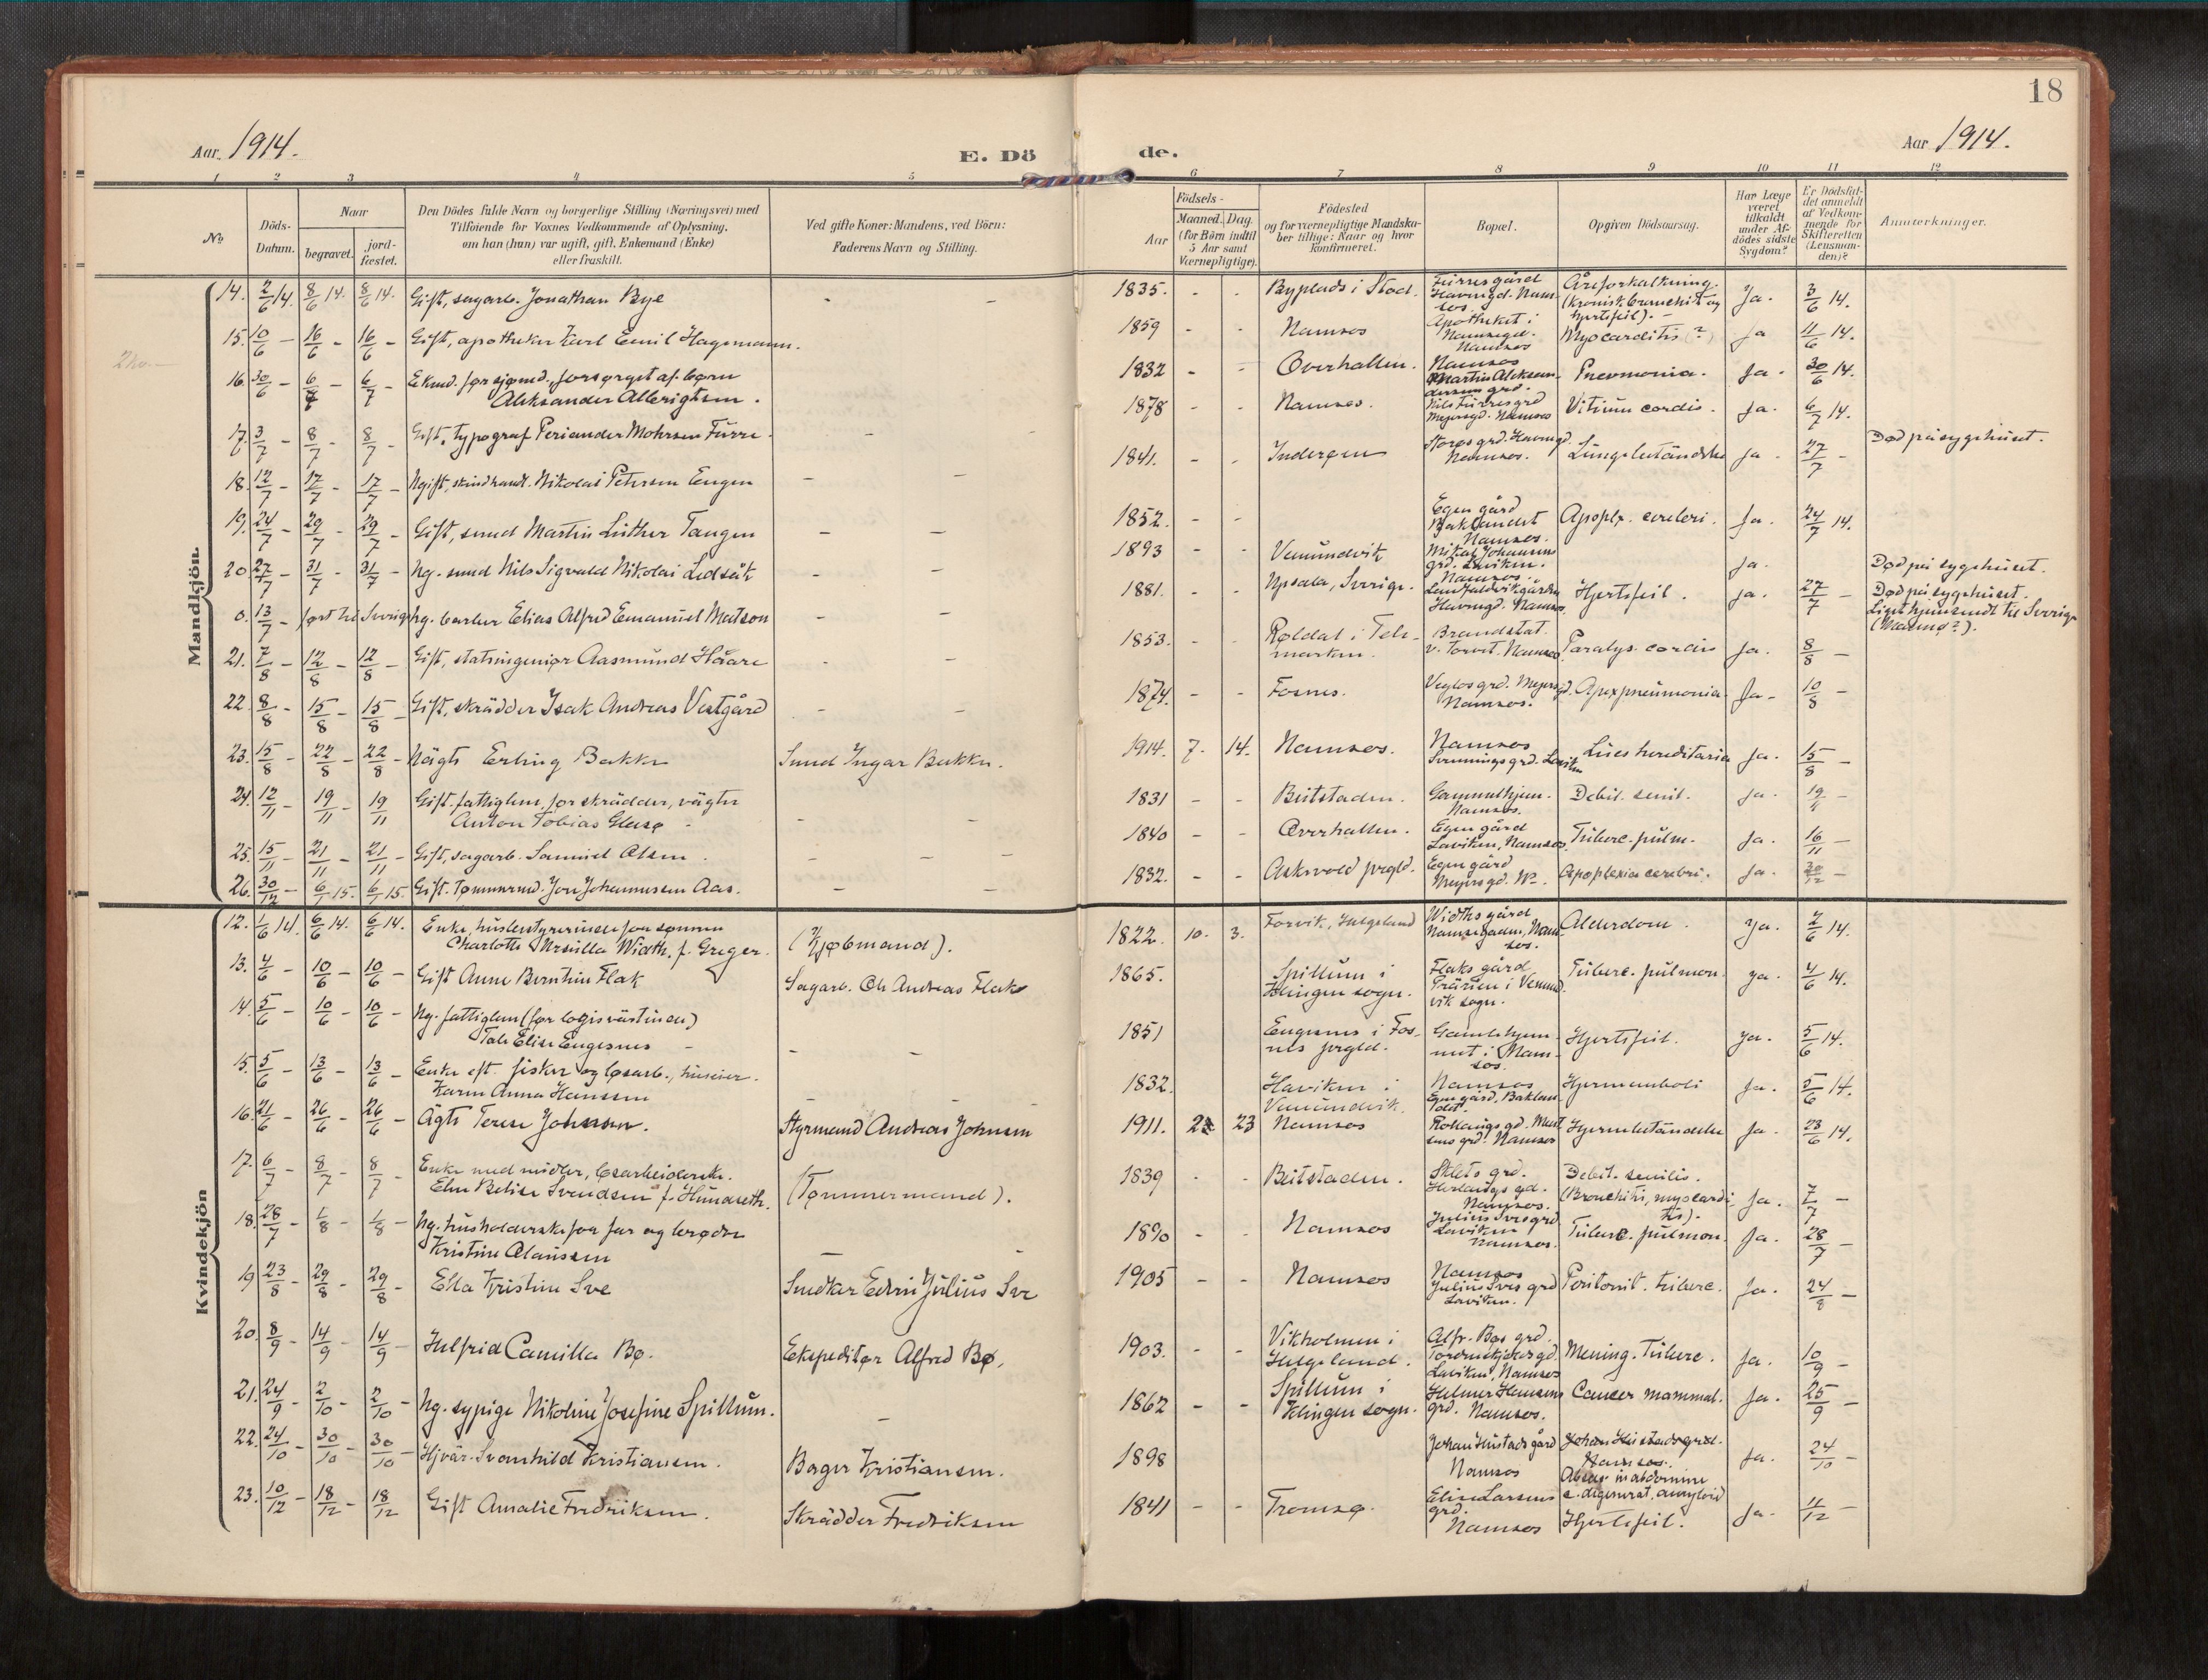 18
Aar 1914.
E. Dö de.
Aar 1914.
1 2 3 4 5 6 7 8 9 10 11 12
No.
Döds-
Datum.
Naar
begravet.
jord-
fæstet.
Den Dödes fulde Navn og borgerlige Stilling (Næringsvei) med
Tilföiende for Voxnes Vedkommende af Oplysning,
om han (hun) var ugift, gift, Enkemand (Enke)
eller fraskilt.
Ved gifte Koner: Mandens, ved Börn:
Faderens Navn og Stilling.
Födsels-
Aar
Maaned. Dag.
(for Börn indtil
5 Aar samt
Værnepligtige).
Födested
og for værnepligtige Mandska-
ber tillige: Naar og hvor
konfirmeret.
Bopæl.
Opgiven Dödsaarsag.
Har Læge
været
tilkaldt
under Af-
dödes sidste
Sygdom?
Er Dödsfal-
det anmeldt
af Vedkom-
mende for
Skifteretten
(Lensman-
den)?
Anmærkninger.
Mandkjön.
14. 2/6 14. 8/6 14. 8/6 14. Gift, sagarb. Jonathan Bye - - 1835. - - Byplads i Stod. Furresgård Havnegd. Namsos. Åreforkalkning. (kronisk bronchit og hjertefeil). - Ja. 3/6 14.
15. 10/6 - 16/6 - 16/6 - Gift, apotheker Karl Emil Hagemann. 1859 - - Namsos Apotheket i Namsegd. Namsos Myocarditis (?) Ja 11/6 14.
16. 30/6 - 6/7 - 6/7 - Ekmd. før sjømd., forsørget af børn
Aleksander Albrigtsen. 1832 - - Overhallen. Namsos Martin Aleksandersens grd. Pnevmonia. Ja. 30/6 14.
17. 3/7 - 8/7 - 8/7 - Gift, typograf Periander Mohrsen Furre. - - 1878 - - Namsos. Nils Furresgrd Meyersgd. Namsos Vitium cordis. Ja. 6/7 14. Død på sygehuset.
18. 12/7 - 17/7 - 17/7 - Ugift, skindhandl. Nikolai Petersen Eugen - - 1841. - - Inderøen Storøs grd. Havnegd. Namsos. Lungebetændelse Ja. 27/7 -
19. 24/7 - 29/7 - 29/7 - Gift, smed Martin Luther Tangen - - 1852. - - Egen gård Baklandet Namsos. Apoplx. cerebri. Ja. 24/7 14.
20. 27/7 - 31/7 - 31/7 - Ug. smed Nils Sigvald Nikolai Ledsåk - - 1893 - - Vemundvik Mikal Johansens grd. Laviken. Namsos. Ja. Død på sygehuset.
0. 13/7 - ført til Sverige Ug. barber Elias Alfred Emanuel Matson - - 1881. - - Upsala, Sverige. Havnegd. Namsos Hjertefeil. Ja. 27/7 - Død på sygehuset.
Liget hjemsendt til Sverige
21. 7/8 - 12/8 - 12/8 - Gift, statsingeniør Aasmund Håare - - 1853. - - Røldal i Telemarken. Brandstat. v. Torvet. Namsos Paralys. cordis Ja. 8/8 -
22. 8/8 - 15/8 - 15/8 - Gift, skrädder Isak Andreas Vestgård - - 1874. - - Fosnes. Veglos grd. Meyersgd. Namsos. Apexpneumonia Ja - 10/8 -
23. 15/8 - 22/8 - 22/8 - Uägte Erling Bakke Smed Ingar Bakken. 1914. 7. 14. Namsos. Namsos Laviken Lües hereditaria Ja. 15/8 -
24. 12/11 - 19/11 - 19/11 Gift, fattiglem, før skrädder, vägter
Anton Tobias Glasø - - - 1831 - - Beitstaden. Gammelhjem. Namsos. Debil. senil. Ja. 19/11 -
25. 15/11 - 21/11 - 21/11 - Gift, sagarb. Samuel Olsen. - - 1840 - - Overhallen. Egen gård Laviken, Namsos. Tuberc. pulm. Ja. 16/11 -
26. 30/12 - 6/1 15. 6/1 15. Gift. Tømmermd. Jon Johannessen Aas. - - 1832. - - Askvold prgld. Egen gård Meyersgd. Ns. Apoplexia cerebri. Ja. 30/12 -
Kvindekjön
12. 1/6 14. 6/6 14. 6/6 14. Enke, husbestyrerinde for sønnen
Charlotte Ursulla Width, f. Greger. (Kjøbmand). 1822. 10. 3. Forvik, Helgeland Widths gård Namsegaden, Namsos. Alderdom. Ja. 2/6 14.
13. 4/6 - 10/6 - 10/6 - Gift Anne Berntine Flak Sagarb. Ole Andreas Flak 1865. Spillum i Klingen sogn. Flaks gård Prärien i Vemundvik sogn. Tuberc. pulmon. Ja. 4/6 14.
14. 5/6 - 10/6 - 10/6 - Ug. fattiglem (før logisvärtinde)
Tale Elise Engesnes - - - 1851 Engesnes i Fosnes prgld. Gamlehjemmet i Namsos. Hjertefeil. Ja. 5/6 14.
15. 5/6 - 13/6 - 13/6 - Enke eft. fisker og løsarb., huseier.
Karen Anna Hansen - - 1832. Haviken i Vemundvik. Namsos Egen gård, Baklandet. Hjerneemboli Ja. 5/6 14.
16. 21/6 - 26/6 - 26/6 - Ägte Terese Johnsen. Styrmand Andreas Johnsen 1911. 2 23 Namsos Namsos Hjernebetændelse Ja. 23/6 14.
17. 6/7 - 8/7 - 8/7 - Enke med midler, løsarbeiderske.
Elen Beline Svendsen f. Hundseth. (Tømmermand). 1839 - - Beitstaden. Sklets grd. Herlaugs gd. Namsos. Debil. senilis. (Bronchitis, myocarditis). Ja. 7/7 -
18. 28/7 - 1/8 - 1/8 - Ug. husholderske for far og brødre
Kristine Olaussen - - 1890 - - Namsos Julius Sves grd Laviken Namsos. Tuberc. pulmon. Ja. 28/7 -
19 23/8 - 29/8 - 29/8 - Ella Kristine Sve Snedker Edvin Julius Sve 1905 - - Namsos Namsos Julius Sves grd Laviken. Peritonit. tuberc. Ja. 24/8 -
20. 8/9 - 14/9 - 14/9 - Helfrid Camilla Bø. Ekspeditør Alfred Bø. 1903. - - Vikholmen i Helgeland. Alfr. Bøs grd. Tordenskjolds gd. Laviken, Namsos Mening. Tuberc. Ja. 10/9 -
21. 24/9 - 2/10 - 2/10 - Ug. sypige Nikoline Josefine Spillum. - 1862 - - Spillum i Klingen sogn. Helmer Hansens grd. Namsos. Cancer mammal. Ja. 25/9 -
22. 24/10 - 30/10 - 30/10 - Hjvär. Svanhild Kristiansen. Bager Kristiansen. 1898 Johan Hustads gård Namsos Johan Hustads grd. Namsos. Absces in abdomine c. degenerat. amyloid Ja. 24/10 -
23. 10/12 - 18/12 - 18/12 Gift Amalie Fredriksen. Skrädder Fredriksen 1841 - - Tromsø. Eline Larsens grd. Namsos Hjertefeil. Ja. 11/12 -